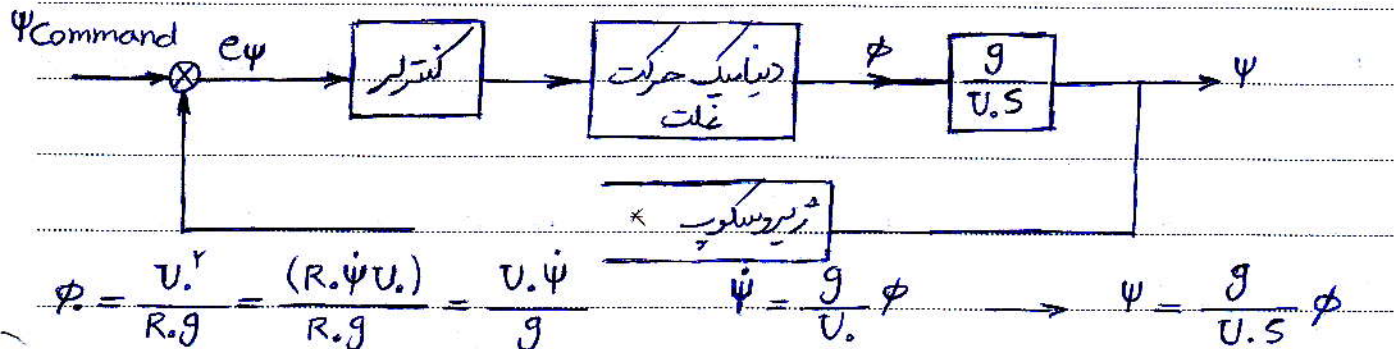 ψCommand eψ کنترلر دینامیک حرکت غلت ϕ g/U.S ψ
ژیروسکوپ *
ϕ. = U.²/R.g = (R.ψ̇U.)/R.g = U.ψ̇/g ψ̇ = g/U. ϕ → ψ = g/U.S ϕ